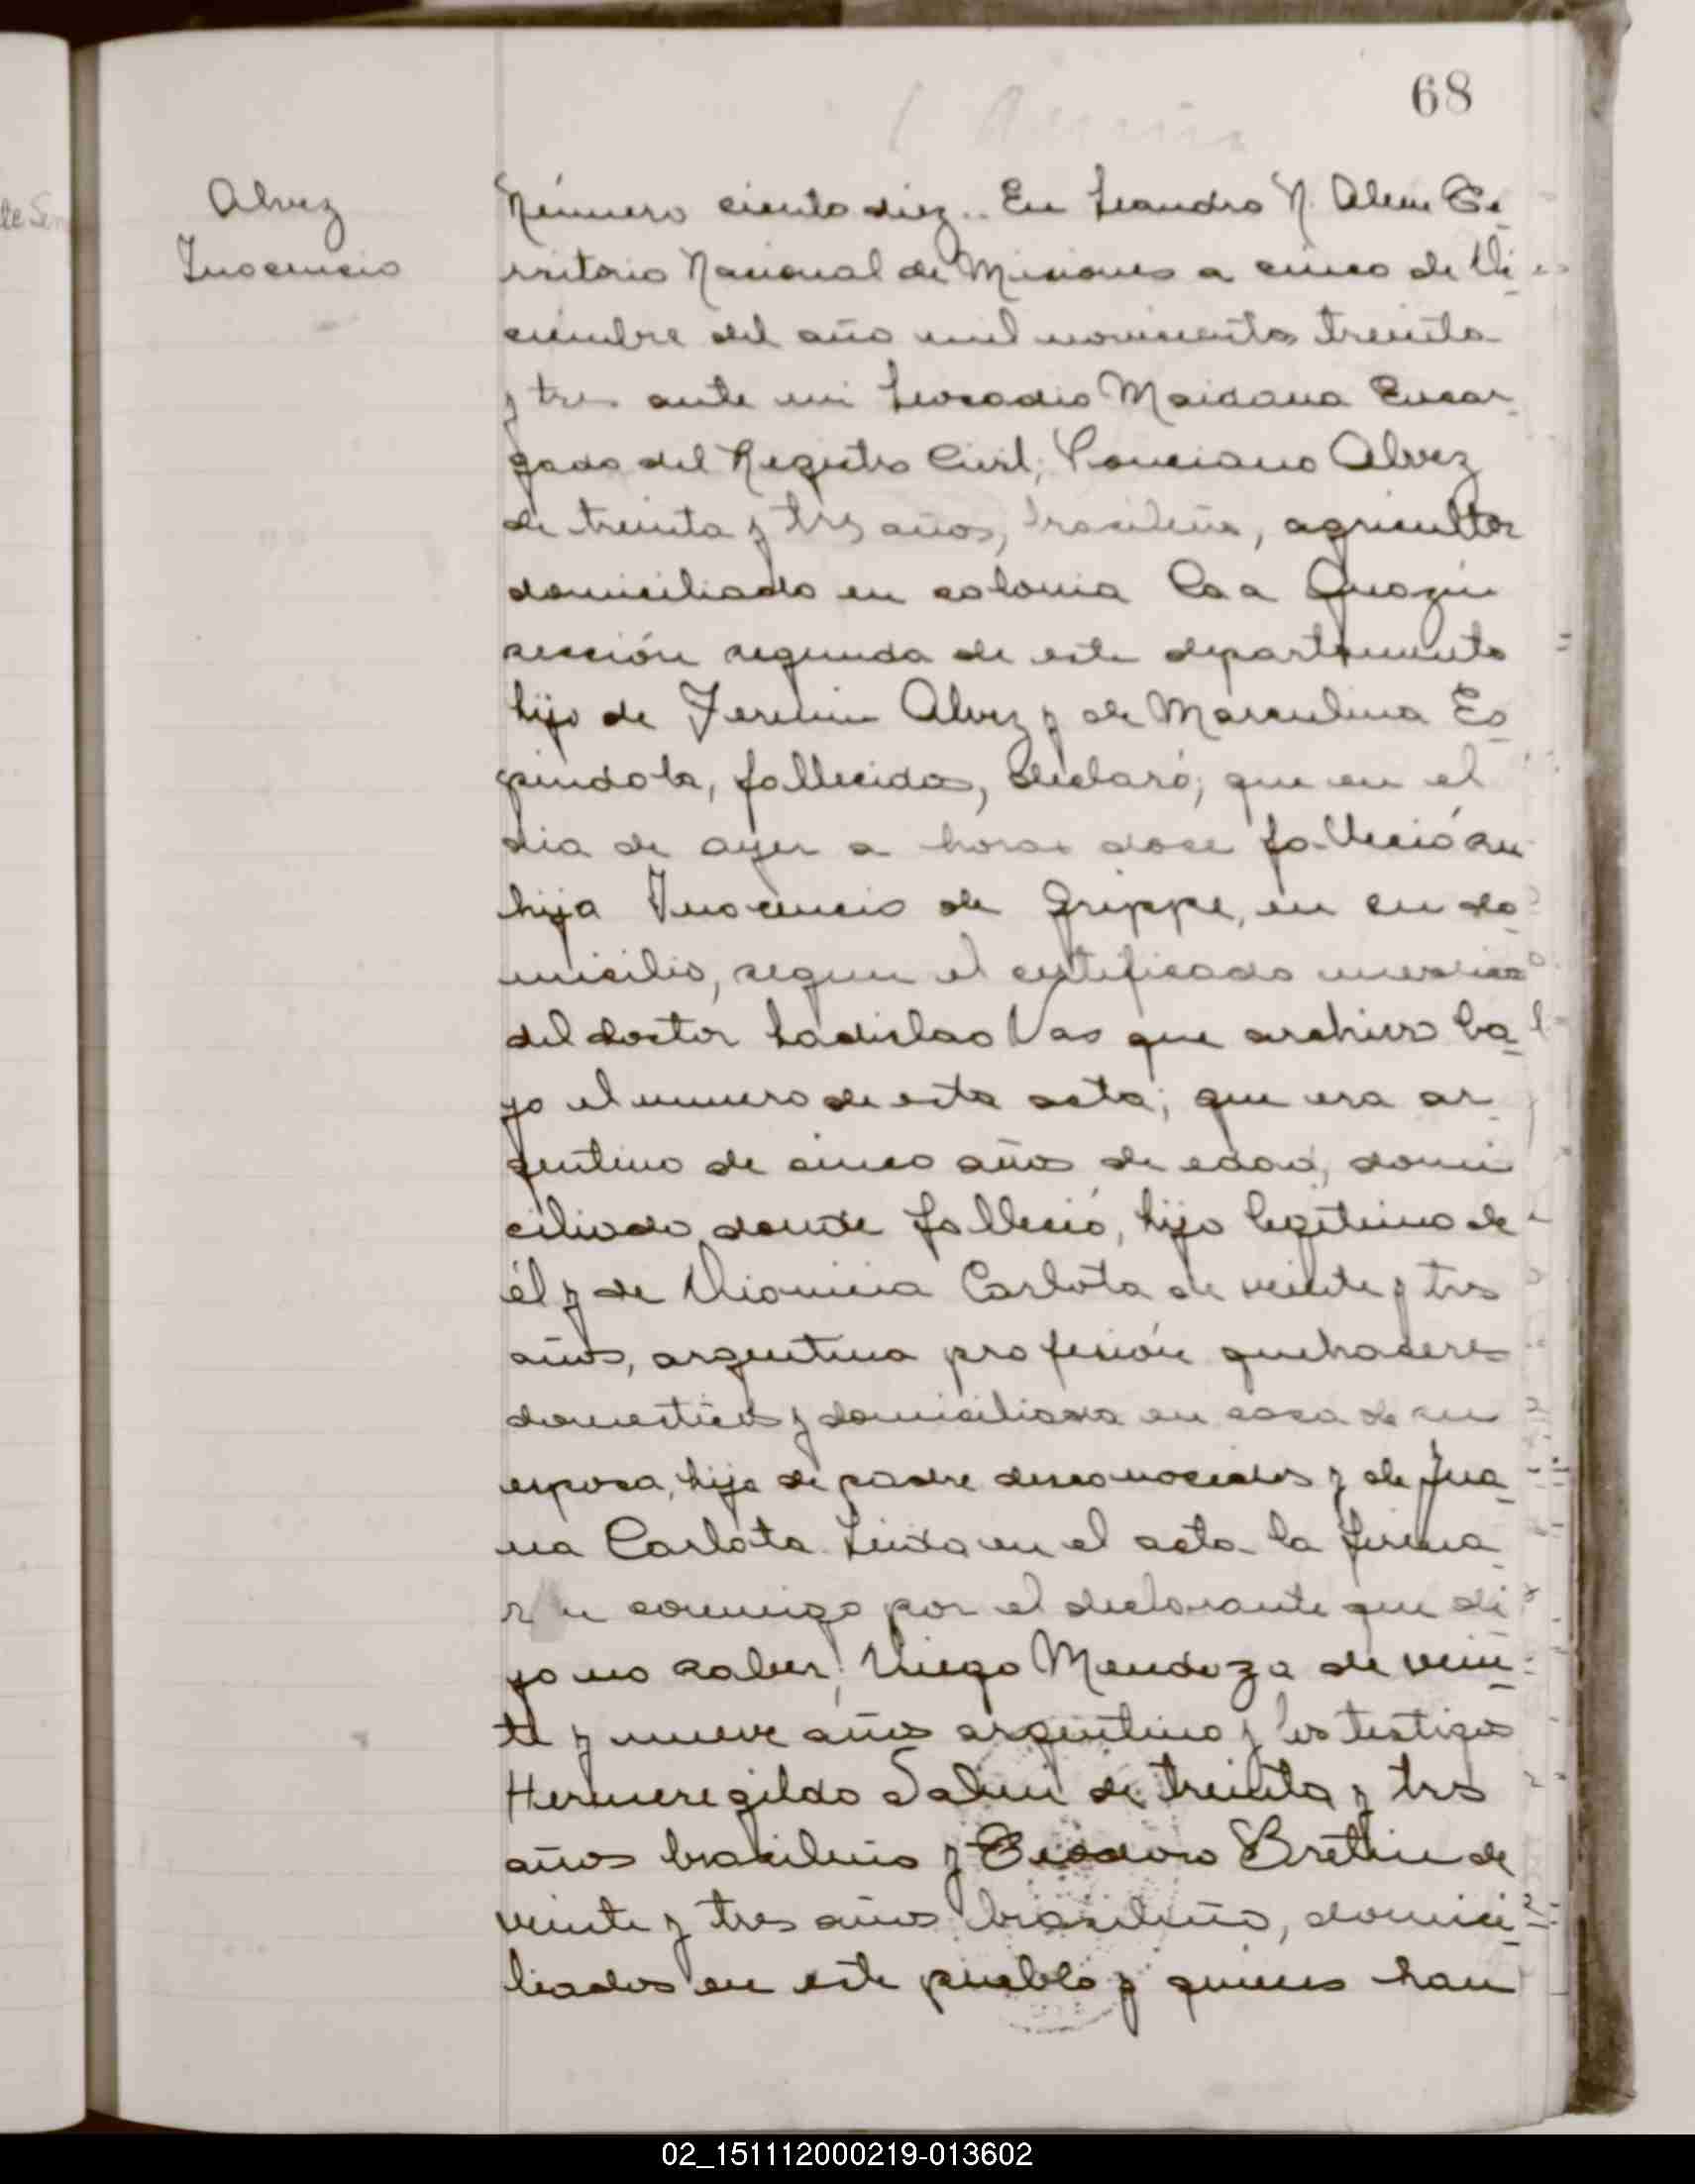 68
Alvez
Inocencio
Número ciento diez.. En Leandro N. Alem Te-
rritorio Nacional de Misiones a cinco de Di-
ciembre del año mil novecientos treinta
y tres ante mi Leocadio Maidana Encar-
gado del Registro Civil; Ponciano Alvez
de treinta y tres años, brasileño, agricultor
domiciliado en colonia Caa Guazú
sección segunda de este departamento
hijo de Fermin Alvez y de Marculina Es-
pindola, fallecidos, declaró; que en el
dia de ayer a horas doce falleció su
hijo Inocencio de Grippe, en su do-
micilio, segun el certificado medico
del doctor Ladislao Vas que archivo ba-
jo el numero de esta acta; que era ar-
gentino de cinco años de edad, domi
ciliado donde falleció, hijo legitimo de
él y de Dionicia Carlota de veinte y tres
años, argentina profesión quehaceres
domesticos y domiciliada en casa de su
esposo, hija de padre desconocidos y de Jua-
na Carlota. Leida en el acta la firma-
n conmigo por el declarante que di-
jo no saber; Diego Mendoza de vein-
te y nueve años argentino y los testigos
Hermeregildo Salvi de treinta y tres
años brasileño y Teodoro Brettin de
veinte y tres años brasileño, domici-
liados en este pueblo y quienes han
02_151112000219-013602